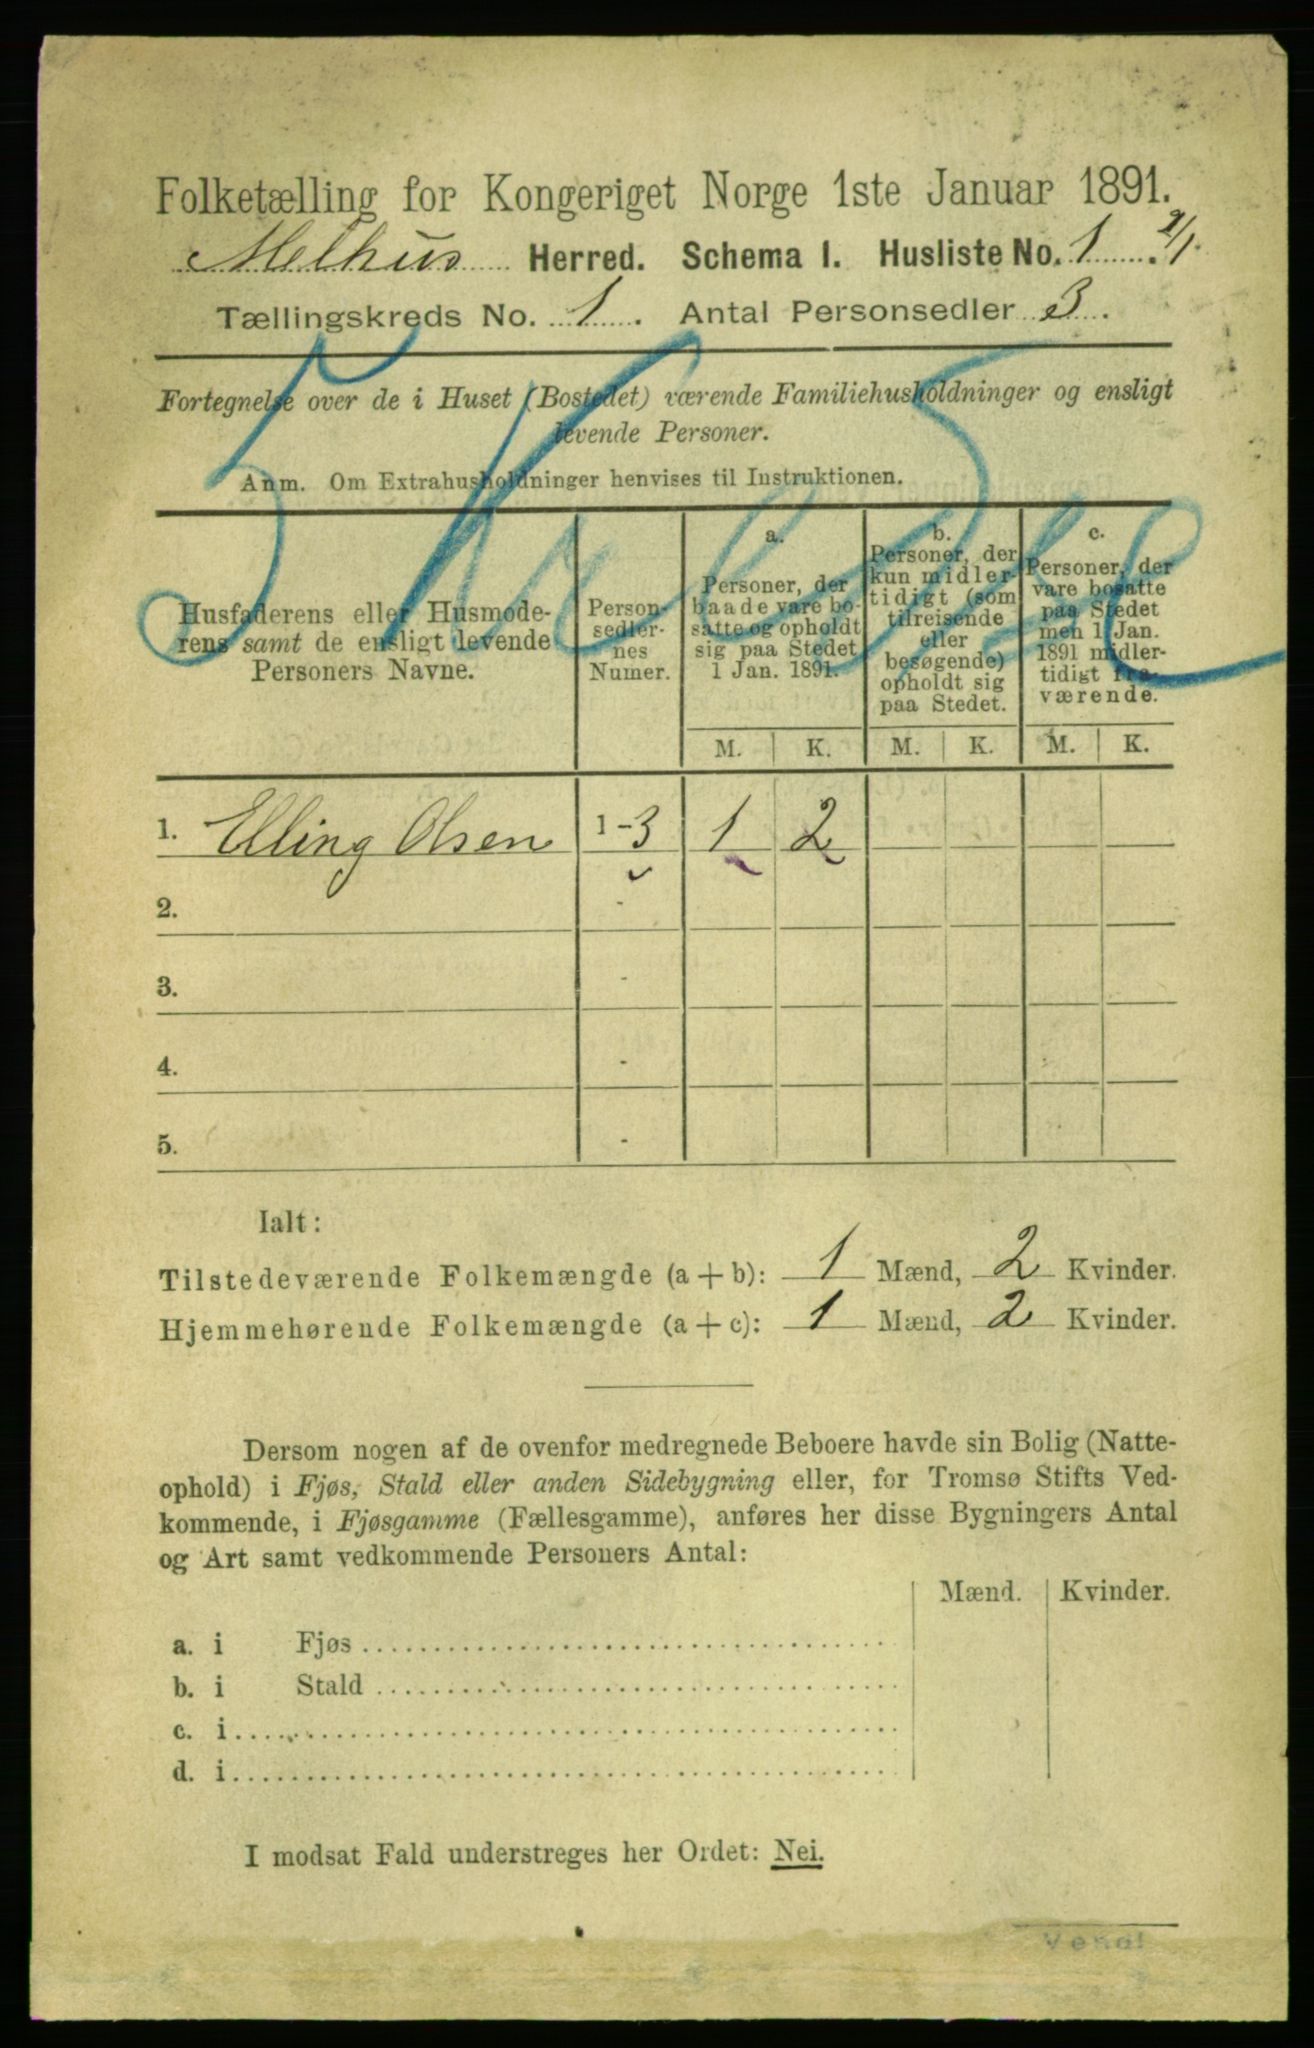 Folketælling for Kongeriget Norge 1ste Januar 1891.
Melhus Herred. Schema I. Husliste No. 1 2/1.
Tællingskreds No. 1. Antal Personsedler 3.
Fortegnelse over de i Huset (Bostedet) værende Familiehusholdninger og ensligt
levende Personer.
Anm. Om Extrahusholdninger henvises til Instruktionen.
Husfaderens eller Husmode-
rens samt de ensligt levende
Personers Navne.
Person-
sedler-
nes
Numer.
a.
Personer, der
baade vare bo-
satte og opholdt
sig paa Stedet
1 Jan. 1891.
b.
Personer, der
kun midler-
tidigt (som
tilreisende
eller
besøgende)
opholdt sig
paa Stedet.
c.
Personer, der
vare bosatte
paa Stedet
men 1 Jan.
1891 midler-
tidigt fra-
værende.
M. K. M. K. M. K.
1. Elling Olsen 1-3 1 2
2. -
3. -
4. -
5. -
Ialt:
Tilstedeværende Folkemængde (a + b): 1 Mænd, 2 Kvinder.
Hjemmehørende Folkemængde (a + c): 1 Mænd, 2 Kvinder.
Dersom nogen af de ovenfor medregnede Beboere havde sin Bolig (Natte-
ophold) i Fjøs, Stald eller anden Sidebygning eller, for Tromsø Stifts Ved-
kommende, i Fjøsgamme (Fællesgamme), anføres her disse Bygningers Antal
og Art samt vedkommende Personers Antal:
Mænd. Kvinder.
a. i Fjøs
b. i Stald
c. i
d. i
I modsat Fald understreges her Ordet: Nei.
Vend!